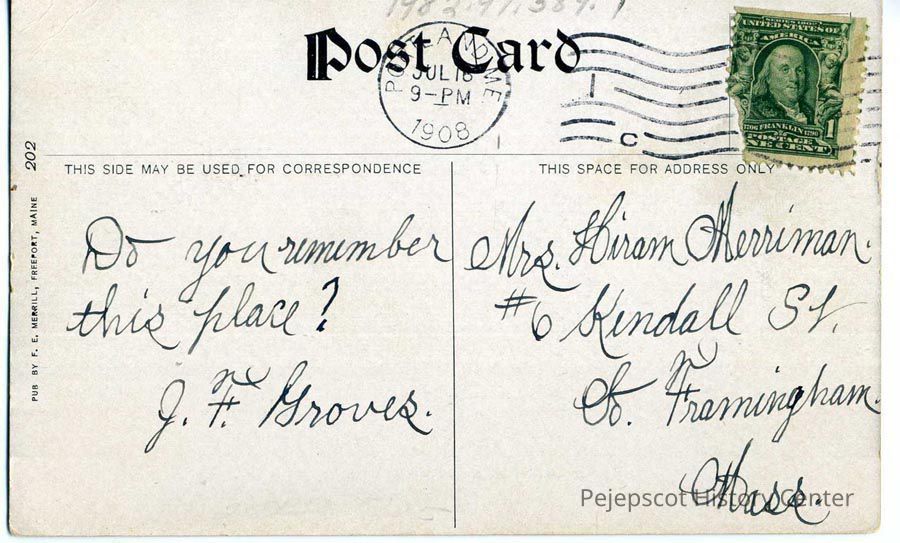 1982.97.389.1
Post Card
PORTLAND, ME
JUL 18
9-PM
1908
1
C
SERIES 1902
UNITED STATES OF
AMERICA
1706 FRANKLIN 1790
POSTAGE
ONE CENT
1
202
PUB BY F. E. MERRILL, FREEPORT, MAINE
THIS SIDE MAY BE USED FOR CORRESPONDENCE
Do you remember
this place?
J. F. Groves.
THIS SPACE FOR ADDRESS ONLY
Mrs. Hiram Merriman.
#6 Kendall St.
So. Framingham.
Mass.
Pejepscot History Center